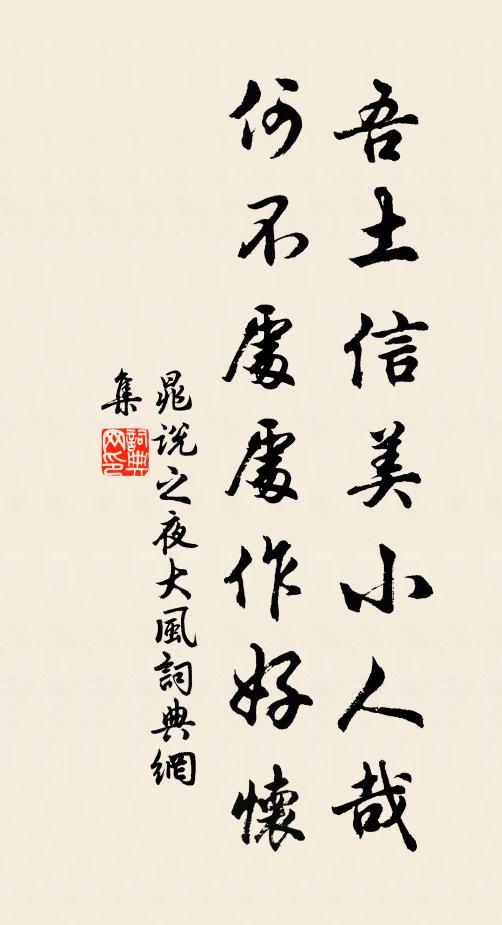 吾土信美小人哉
何不處處作好懷
晁說之夜大風詞典網
集
詞典网印